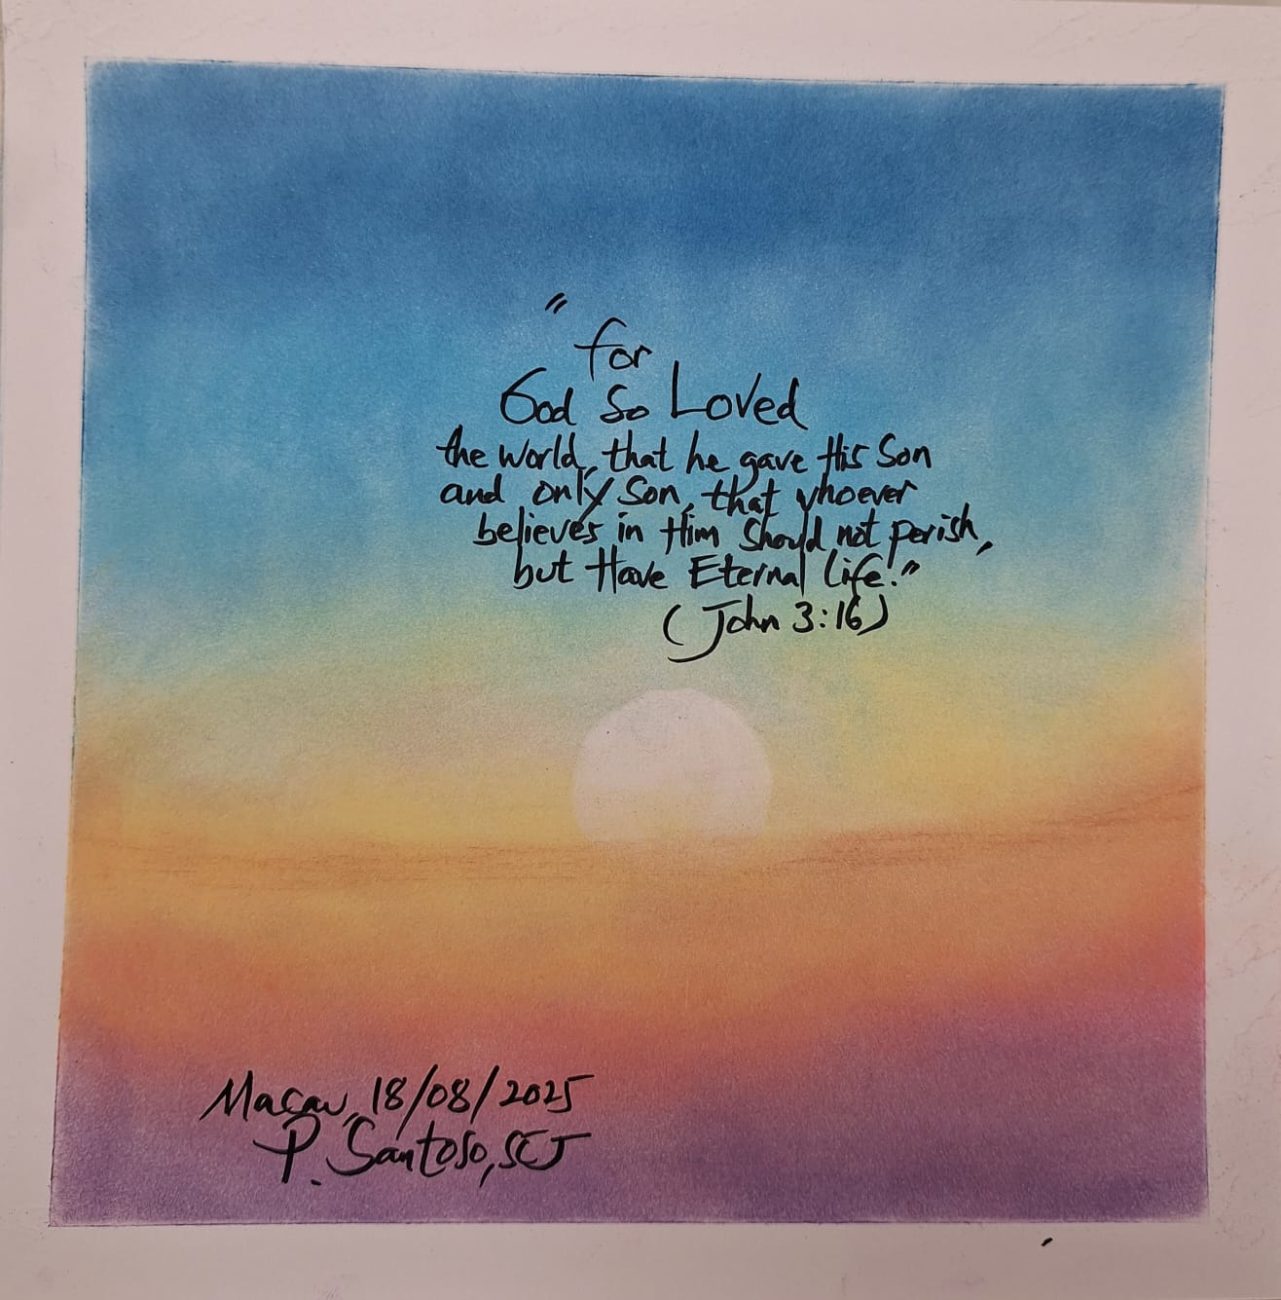 "for
God So Loved
the world, that he gave His Son
and only Son, that whoever
believes in Him should not perish,
but Have Eternal life."
(John 3:16)
Macau, 18/08/2025
P. Santoso, SCJ